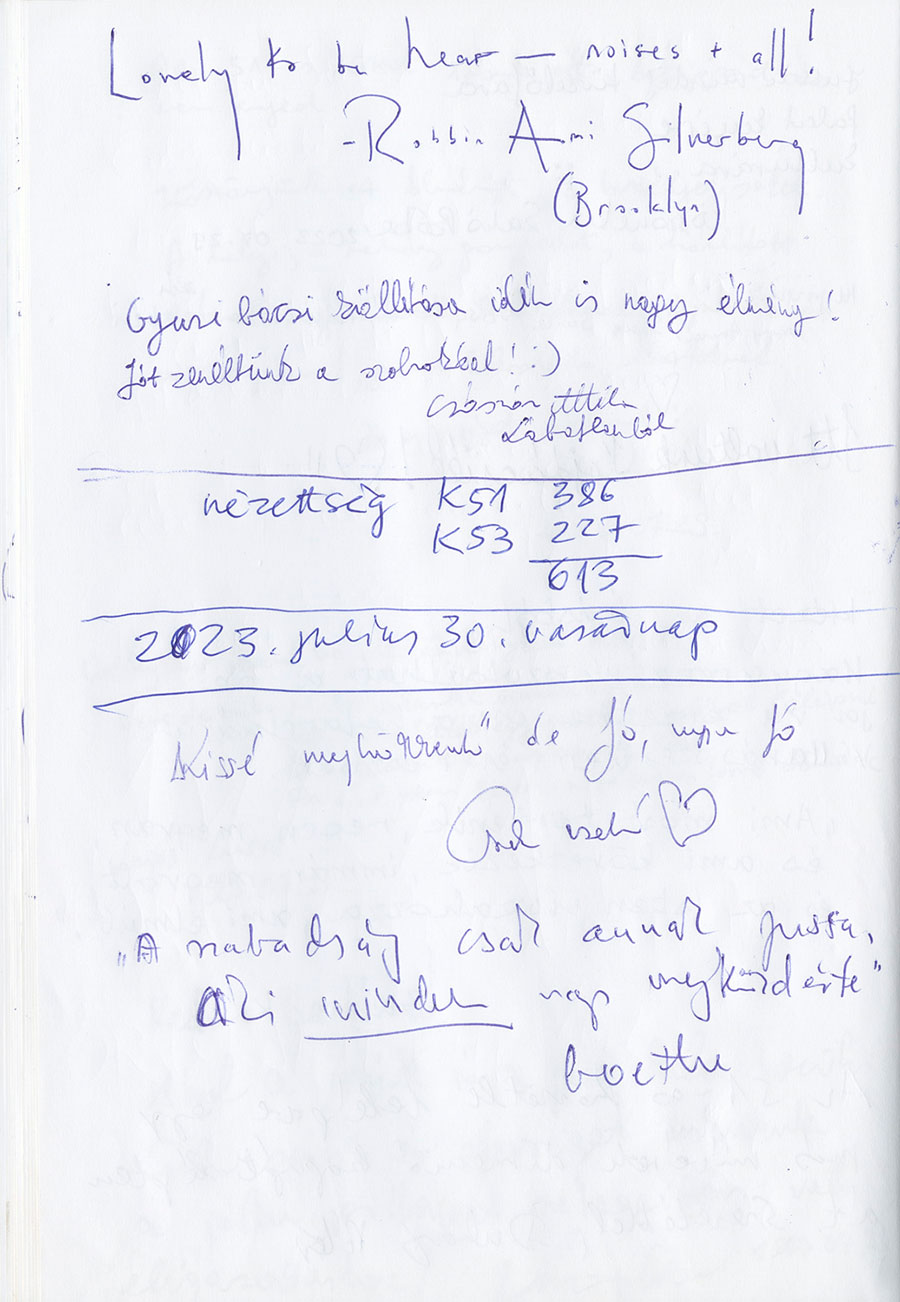 Lovely to be hear — noises + all!
- Robbin Ami Silverberg
(Brooklyn)
Gyuri bácsi kiállítása idén is nagy élmény!
Jót zenéltünk a szobrokkal! :)
Császár Attila
Lábatlanból
nézettség K51 386
K53 227
613
2023. július 30. vasárnap
Kissé meghökkentő de Jó, nagyon Jó
"A szabadság csak annak jussa,
Aki minden nap megküzd érte"
Goethe